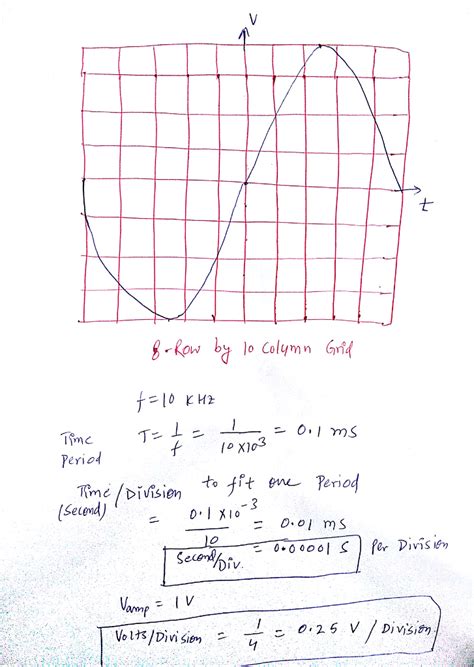 V
t
8-Row by 10 Column Grid
f = 10 KHz
Time Period T = 1/f = 1/(10 x10³) = 0.1 ms
Time/Division to fit one Period
(Second)
= 0.1 x10⁻³/10 = 0.01 ms
Second/Div. = 0.00001 S Per Division
Vamp = 1V
Volts/Division = 1/4 = 0.25 V / Division